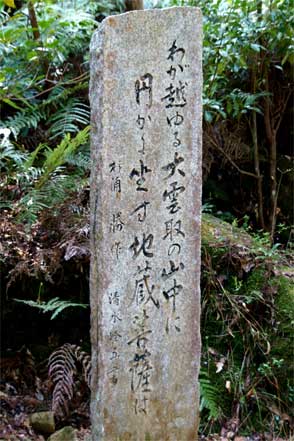 わが越ゆる大雲取の山中に
円かに坐す地蔵菩薩は
杉浦勝作